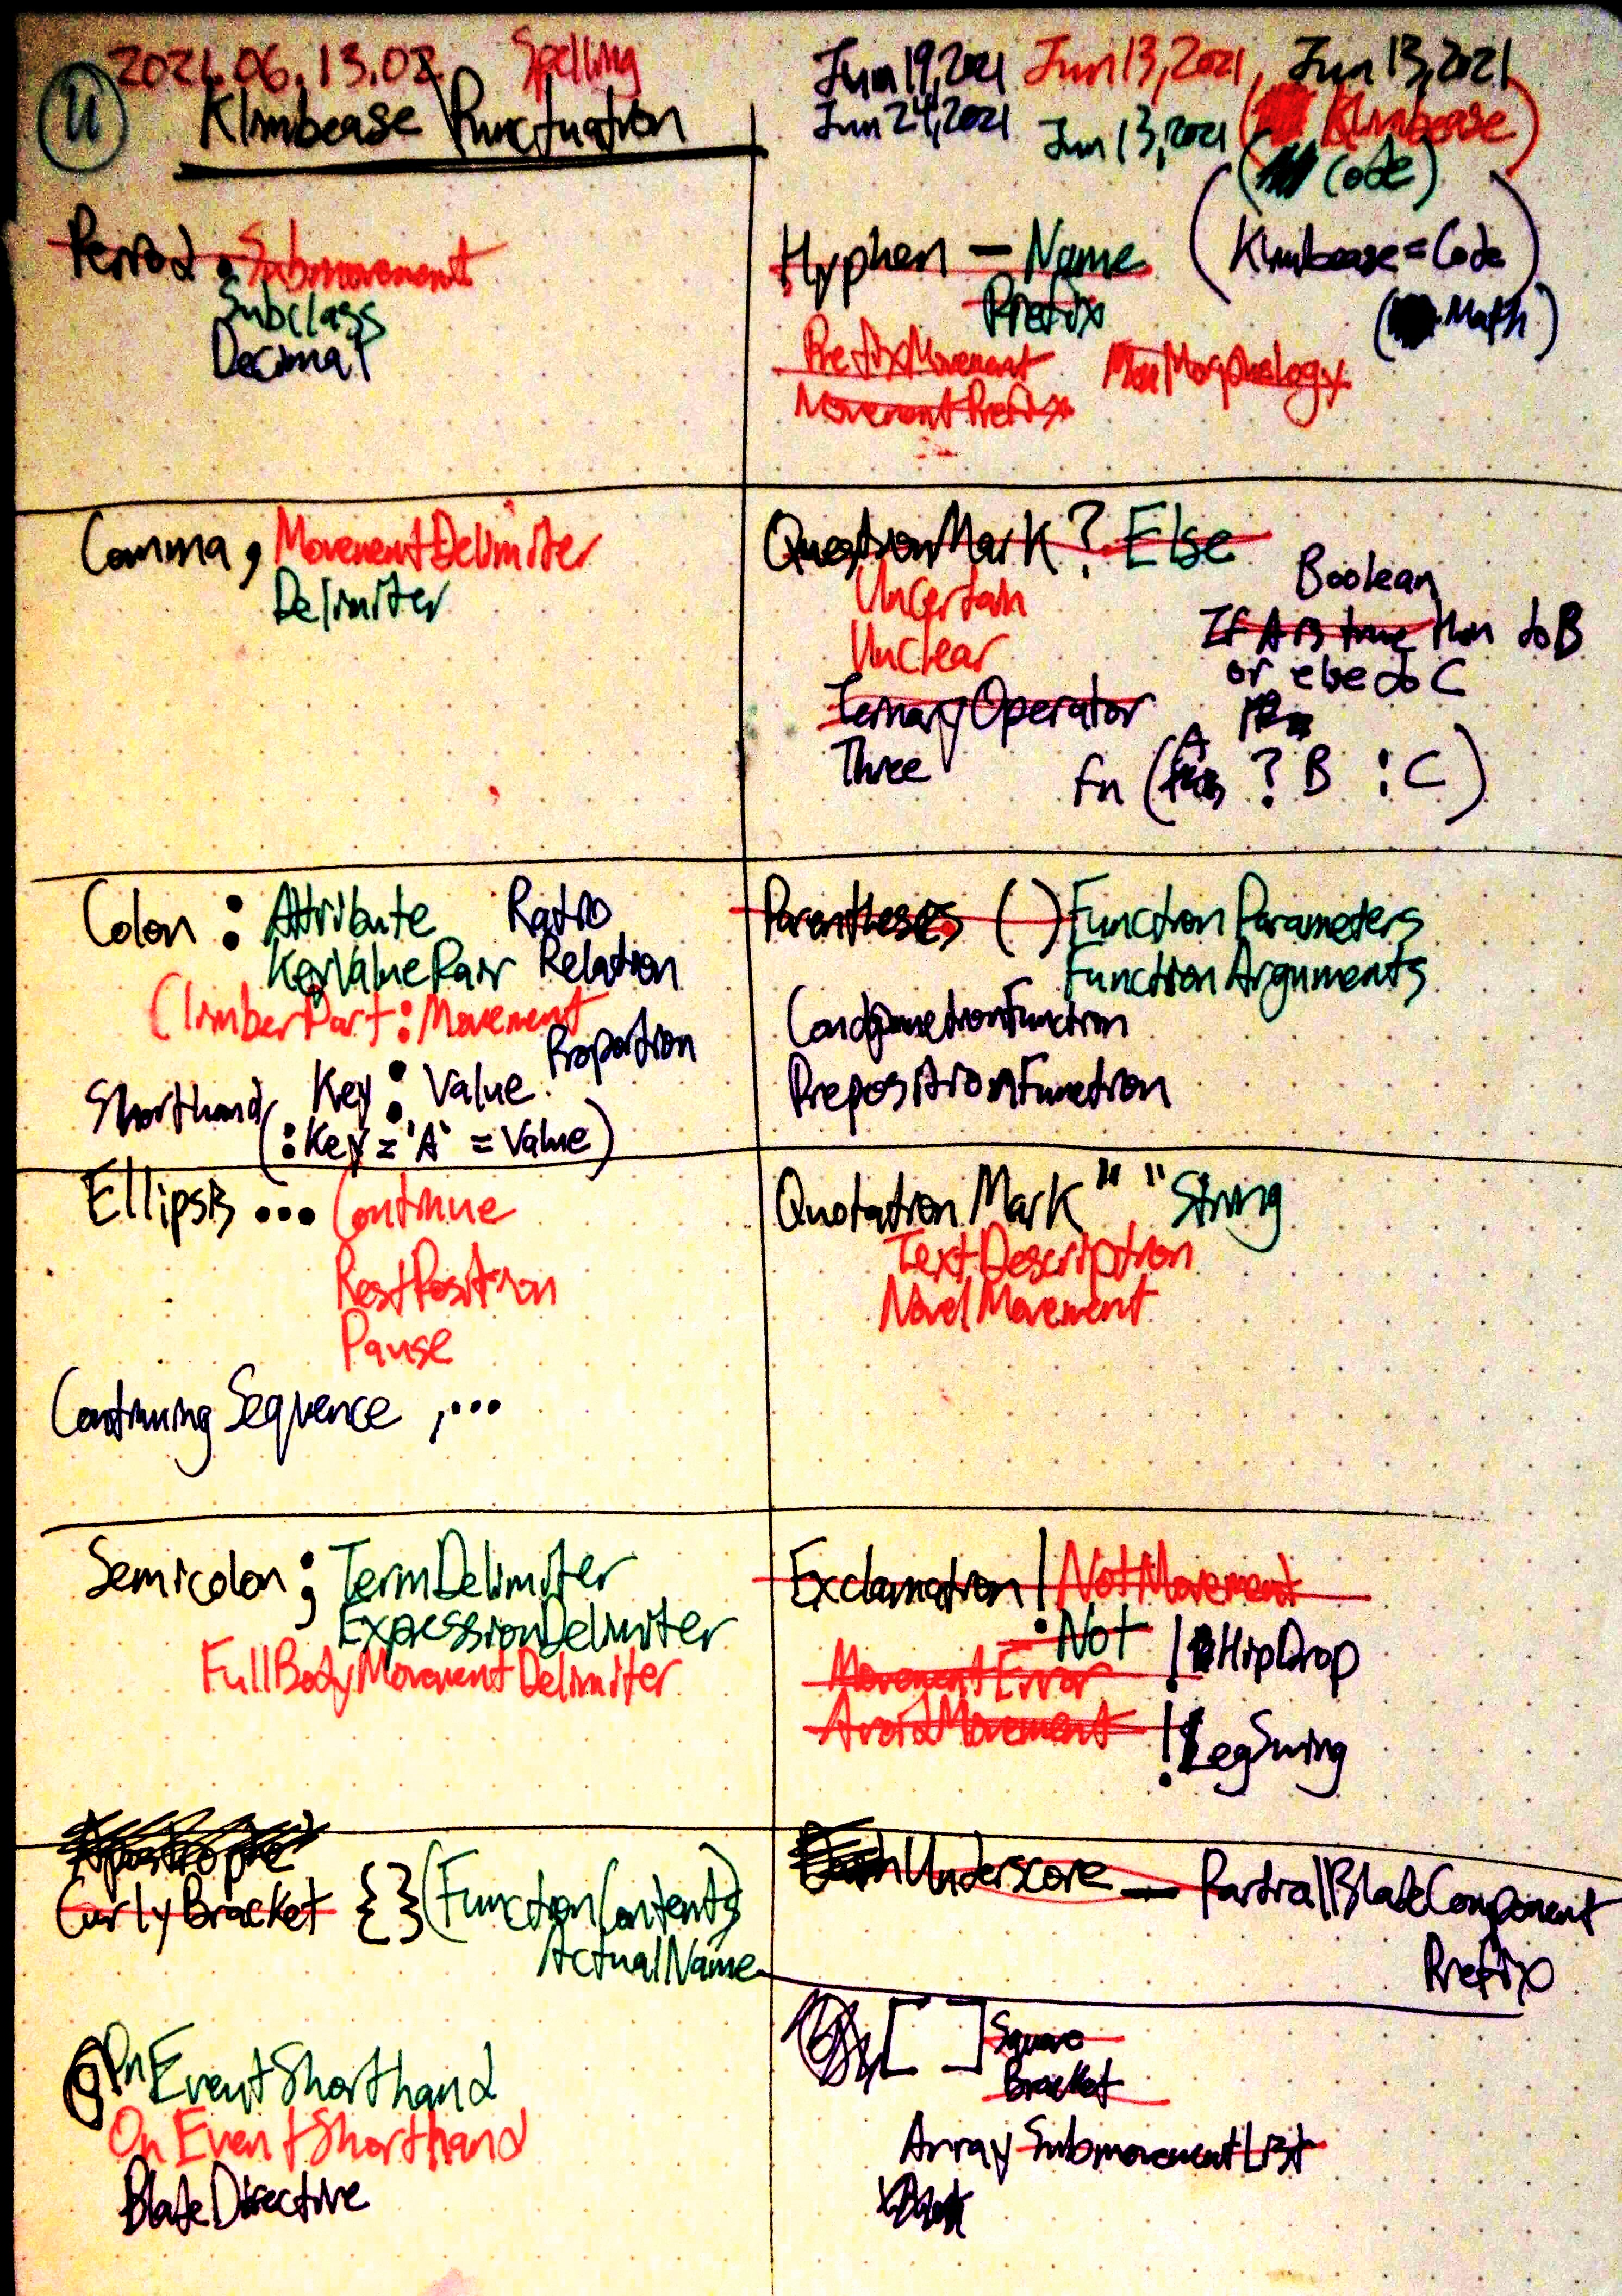 2021.06.13.02 Spelling
U Klimbease Punctuation
Jun 19, 2021 Jun 13, 2021, Jun 13, 2021
Jun 24, 2021 Jun 13, 2021 (Klimbease)
(Code)
(Klimbease = Code)
(Math)
Period . Submovement
Subclass
Decimal
Hyphen - Name
Prefix
PrefixMovement Morphology
MovementPrefix
Comma , MovementDelimiter
Delimiter
QuestionMark ? Else
Uncertain
Unclear
TernaryOperator
Three
Boolean
If A is true then do B
or else do C
fn (A ? B : C)
Colon : Attribute Ratio
KeyValuePair Relation
ClimberPart:Movement
Proportion
Key : Value
Shorthand (:Key = 'A' = Value)
Parentheses ( ) FunctionParameters
FunctionArguments
ConjunctionFunction
PrepositionFunction
Ellipsis ... Continue
RestPosition
Pause
Continuing Sequence ,...
QuotationMark " " String
TextDescription
NovelMovement
Semicolon ; TermDelimiter
ExpressionDelimiter
FullBodyMovementDelimiter
Exclamation ! NotMovement
Not
MovementError !HipDrop
AvoidMovement !LegSwing
Apostrophe
CurlyBracket { } (FunctionContents)
ActualName
Underscore _ PartialBladeComponent
Prefix
@ OnEventShorthand
OnEventShorthand
BladeDirective
[ ] Square
Bracket
Array SubmovementList